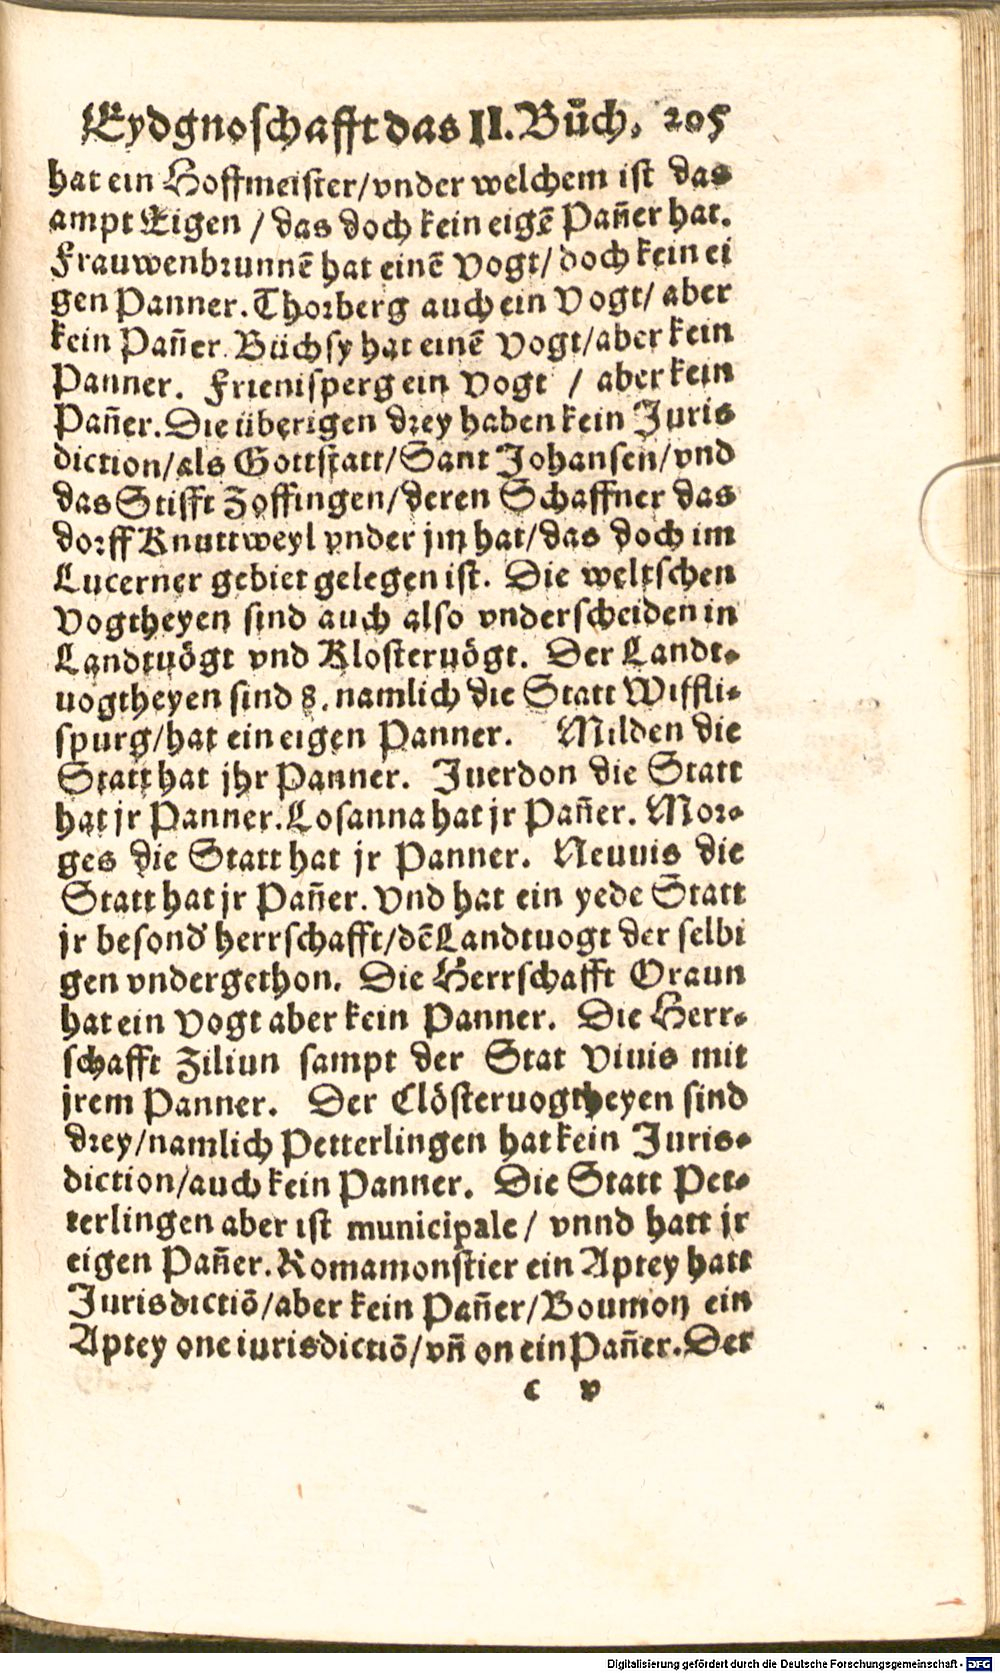 Eydgnoschafft das II. Bůch. 205
hat ein Hoffmeister/vnder welchem ist das
ampt Eigen / das doch kein eigẽ Pañer hat.
Frauwenbrunnẽ hat einẽ Vogt/doch kein ei
gen Panner. Thorberg auch ein Vogt/ aber
kein Pañer. Büchsy hat einẽ Vogt/aber kein
Panner. Frienisperg ein Vogt / aber kein
Pañer. Die überigen drey haben kein Juris
diction/als Gottstatt/Sant Johansen/vnd
das Stifft Zoffingen/deren Schaffner das
dorff Knuttweyl vnder jm hat/das doch im
Lucerner gebiet gelegen ist. Die weltschen
Vogtheyen sind auch also vnderscheiden in
Landtuögt vnd Klosteruögt. Der Landt-
uogtheyen sind 8. namlich die Statt Wiffli-
spurg/hat ein eigen Panner. Milden die
Statt hat jhr Panner. Juerdon die Statt
hat jr Panner. Losanna hat jr Pañer. Mor-
ges die Statt hat jr Panner. Neuuis die
Statt hat jr Pañer. Vnd hat ein yede Statt
jr besond' herrschafft/dẽ Landtuogt der selbi
gen vndergethon. Die Herrschafft Oraun
hat ein Vogt aber kein Panner. Die Herr-
schafft Ziliun sampt der Stat Viuis mit
jrem Panner. Der Clösteruogtheyen sind
drey/namlich Petterlingen hat kein Juris-
diction/auch kein Panner. Die Statt Pet-
terlingen aber ist municipale / vnnd hatt jr
eigen Pañer. Romamonstier ein Aptey hatt
Jurisdictiõ/aber kein Pañer/Boumon ein
Aptey one iurisdictiõ/vñ on ein Pañer. Der
c v
Digitalisierung gefördert durch die Deutsche Forschungsgemeinschaft - DFG